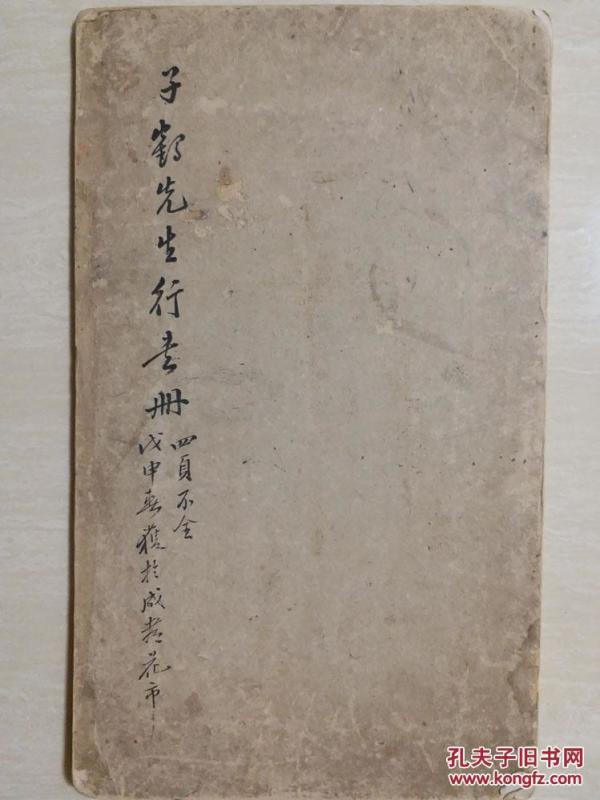 子鹤先生行书册
四頁不全
戊申春獲於成都花市
孔夫子旧书网
www.kongfz.com